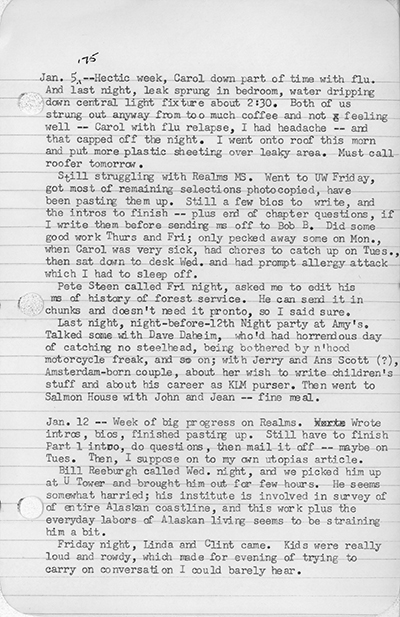 '75
Jan. 5,--Hectic week, Carol down part of time with flu.
And last night, leak sprung in bedroom, water dripping
down central light fixture about 2:30. Both of us
strung out anyway from too much coffee and not g feeling
well -- Carol with flu relapse, I had headache -- and
that capped off the night. I went onto roof this morn
and put more plastic sheeting over leaky area. Must call
roofer tomorrow.
Still struggling with Realms MS. Went to UW Friday,
got most of remaining selections photocopied, have
been pasting them up. Still a few bios to write, and
the intros to finish -- plus end of chapter questions, if
I write them before sending ms off to Bob B. Did some
good work Thurs and Fri; only pecked away some on Mon.,
when Carol was very sick, had chores to catch up on Tues.,
then sat down to desk Wed. and had prompt allergy attack
which I had to sleep off.
Pete Steen called Fri night, asked me to edit his
ms of history of forest service. He can send it in
chunks and doesn't need it pronto, so I said sure.
Last night, night-before-12th Night party at Amy's.
Talked some with Dave Daheim, who'd had horrendous day
of catching no steelhead, being bothered by n'hocd
motorcycle freak, and so on; with Jerry and Ans Scott (?),
Amsterdam-born couple, about her wish to write children's
stuff and about his career as KLM purser. Then went to
Salmon House with John and Jean -- fine meal.
Jan. 12 -- Week of big progress on Realms. Wrote
intros, bios, finished pasting up. Still have to finish
Part 1 intro, do questions, then mail it off -- maybe on
Tues. Then, I suppose on to my own utopias article.
Bill Reeburgh called Wed. night, and we picked him up
at U Tower and brought him out for few hours. He seems
somewhat harried; his institute is involved in survey of
of entire Alaskan coastline, and this work plus the
everyday labors of Alaskan living seems to be straining
him a bit.
Friday night, Linda and Clint came. Kids were really
loud and rowdy, which made for evening of trying to
carry on conversation I could barely hear.